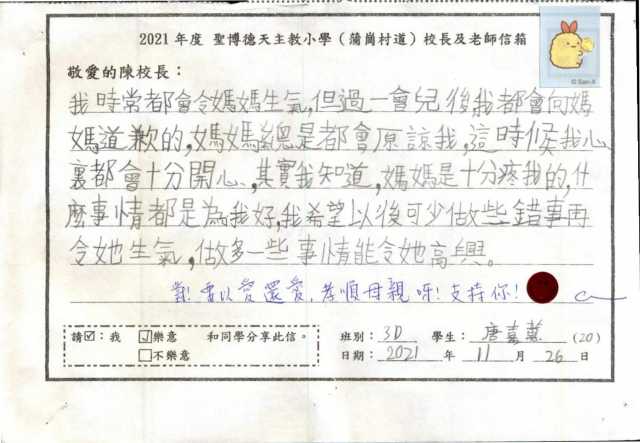 2021 年度 聖博德天主教小學（蒲崗村道）校長及老師信箱
© San-X
敬愛的陳校長：
我時常都會令媽媽生氣,但過一會兒後我都會向媽
媽道歉的,媽媽總是都會原諒我,這時候我心
裏都會十分開心,其實我知道,媽媽是十分疼我的,什
麼事情都是為我好,我希望以後可少做些錯事再
令她生氣,做多一些事情能令她高興。
對!要以愛還愛,孝順母親呀!支持你!
請☑：我 ☑樂意 和同學分享此信。
□不樂意
班別：3D 學生：唐嘉 (20)
日期：2021 年 11 月 26 日